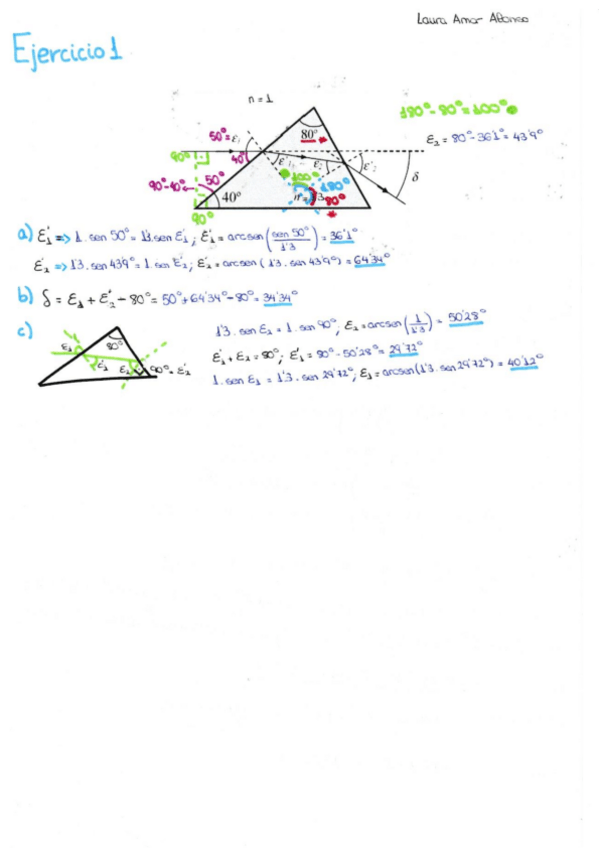 Laura Amar Alfonso
Ejercicio 1
n=1
180°-80°=100°
50°=ε₁
80°
ε₂=80°-36'1°=43'9°
90°
40°
ε'₁
ε₂
ε'₂
δ
100°
180°
90°-40°
50°
40°
80°
90°
a) ε'₁ => 1. sen 50° = 1'3. sen ε'₁ ; ε'₁ = arcsen (sen 50°/1'3) = 36'1°
ε'₂ => 1'3. sen 43'9° = 1. sen ε'₂ ; ε'₂ = arcsen (1'3. sen 43'9°) = 64'34°
b) δ = ε₁ + ε'₂ - 80° = 50° + 64'34° - 80° = 34'34°
c)
80°
1'3. sen ε₂ = 1. sen 90° ; ε₂ = arcsen (1/1'3) = 50'28°
ε₁
ε'₁
ε₂
90° = ε'₂
ε'₁ + ε₂ = 80° ; ε'₁ = 80° - 50'28° = 29'72°
1. sen ε₁ = 1'3. sen 29'72° ; ε₁ = arcsen (1'3. sen 29'72°) = 40'12°